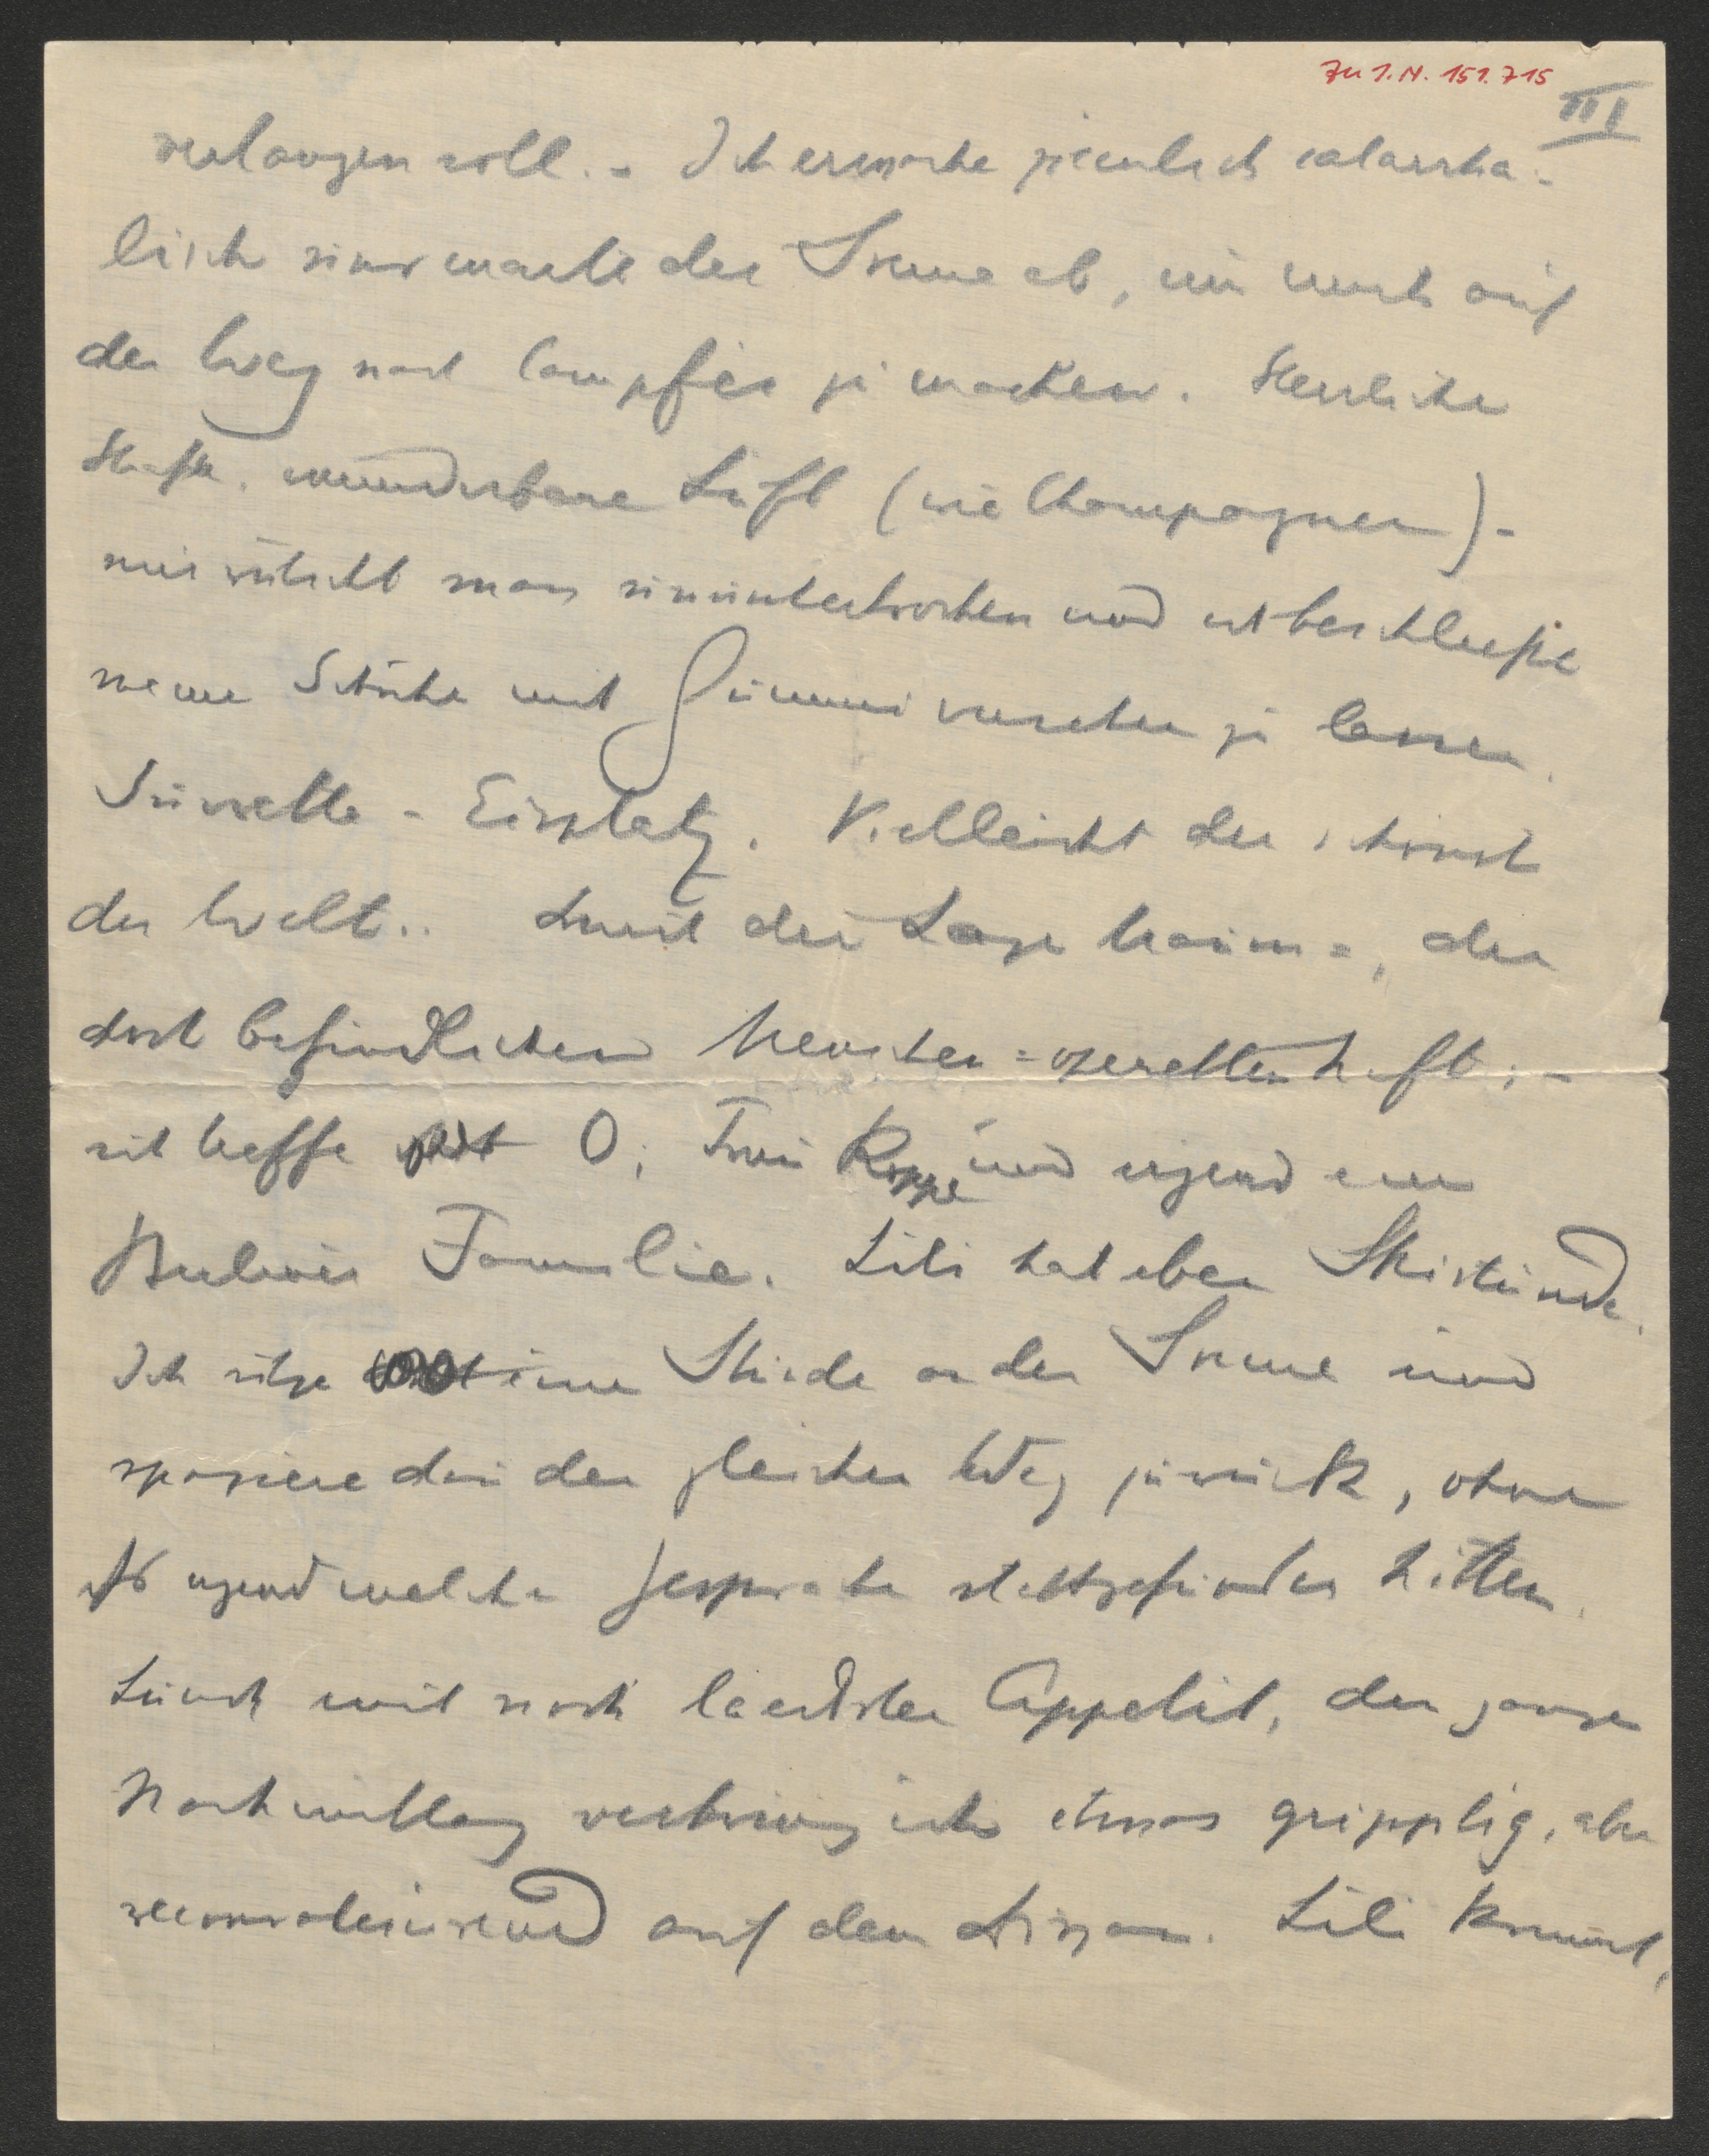 Zu I.N. 151.715
III
verlangen soll. - Ich erwache ziemlich catarrha-
lisch und warte die Sonne ab, um mich auf
den Weg nach Campfer zu machen. Herrliche
wunderbare Luft (wie Champagner) -
nur rutscht man ununterbrochen und ich beschließe
meine Schuhe mit Gummi versehen zu lassen.
Suvretta - Eisplatz. Vielleicht der schönste
der Welt.. Durch die Lage kaum, die
dort befindlichen Menschen = operettenhaft; -
ich treffe O; Frau Koppe und irgend eine
Familie. Lili hat eben Skistunde.
Ich sitze eine Stunde an der Sonne und
spaziere dan den gleichen Weg zurück, ohne
daß irgendwelche Gespräche stattgefunden hätten.
Lunch mit noch leichtem Appetit, den ganzen
Nachmittag verbring ich etwas gripplig, aber
reconvalescirend auf dem Divan. Lili kommt,